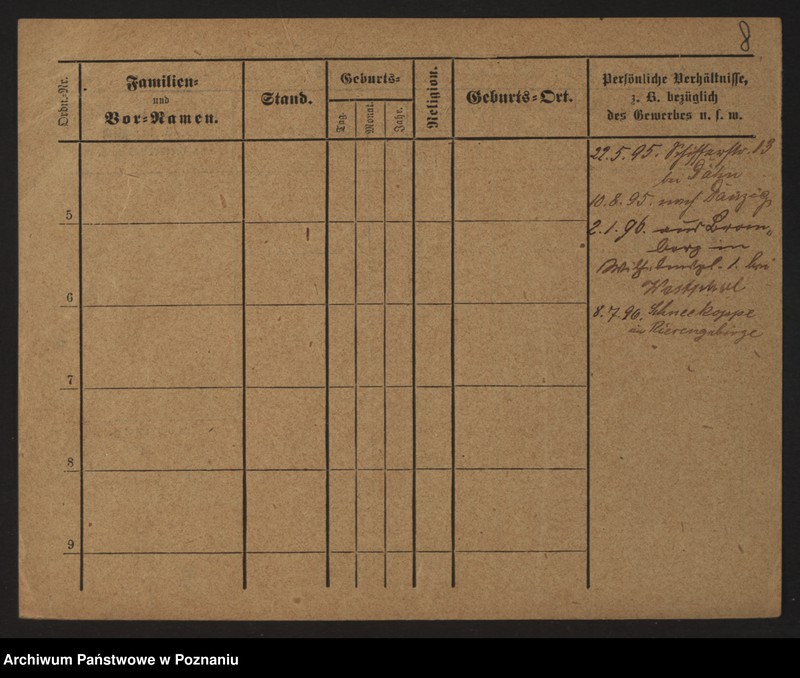 8
Ordn.-Nr.
Familien-
und
Vor-Namen.
Stand.
Geburts-
Tag.
Monat.
Jahr.
Religion.
Geburts-Ort.
Persönliche Verhältnisse,
z. B. bezüglich
des Gewerbes u. s. w.
22.5.95. Schifferstr. 13
bei
10.8.95. nach Danzig
2.1.96. aus Brom-
berg in
Wilhelmspl. 1. bei
Westphal
8.7.96. Schneekoppe
im Riesengebirge
5
6
7
8
9
Archiwum Państwowe w Poznaniu